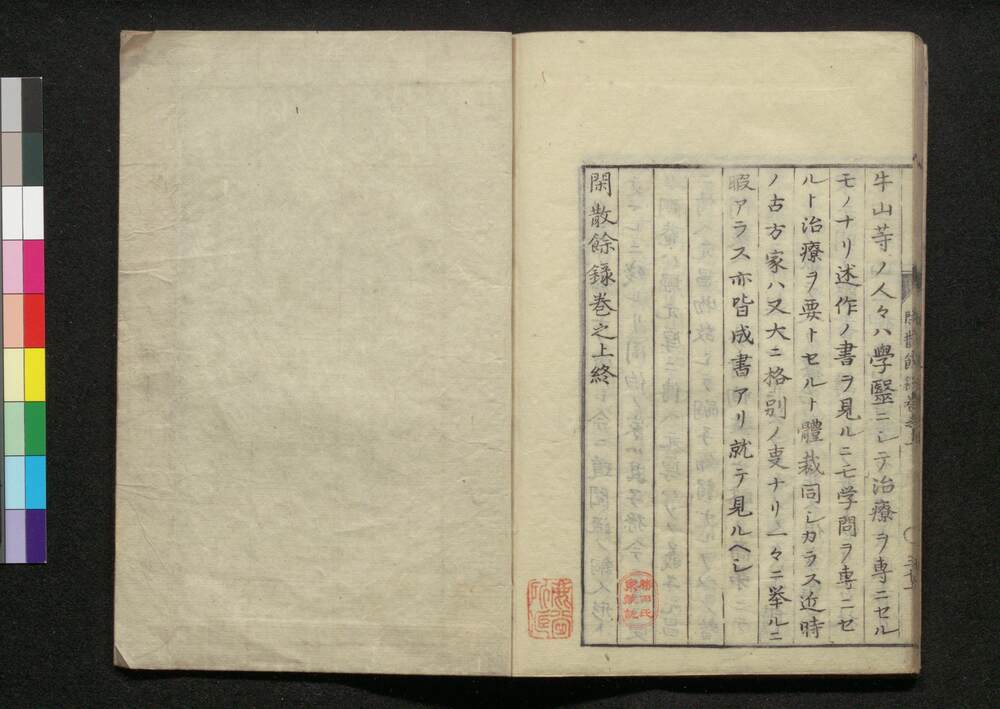 牛山等ノ人々ハ學醫ニシテ治療ヲ専ニセル
モノナリ述作ノ書ヲ見ルニモ学問ヲ専ニセ
ルト治療ヲ要トセルト體裁同シカラス近時
ノ古方家ハ又大ニ格別ノ叓ナリ一々ニ挙ルニ
暇アラス亦皆成書アリ就テ見ルヘシ
閑散餘録巻之上終